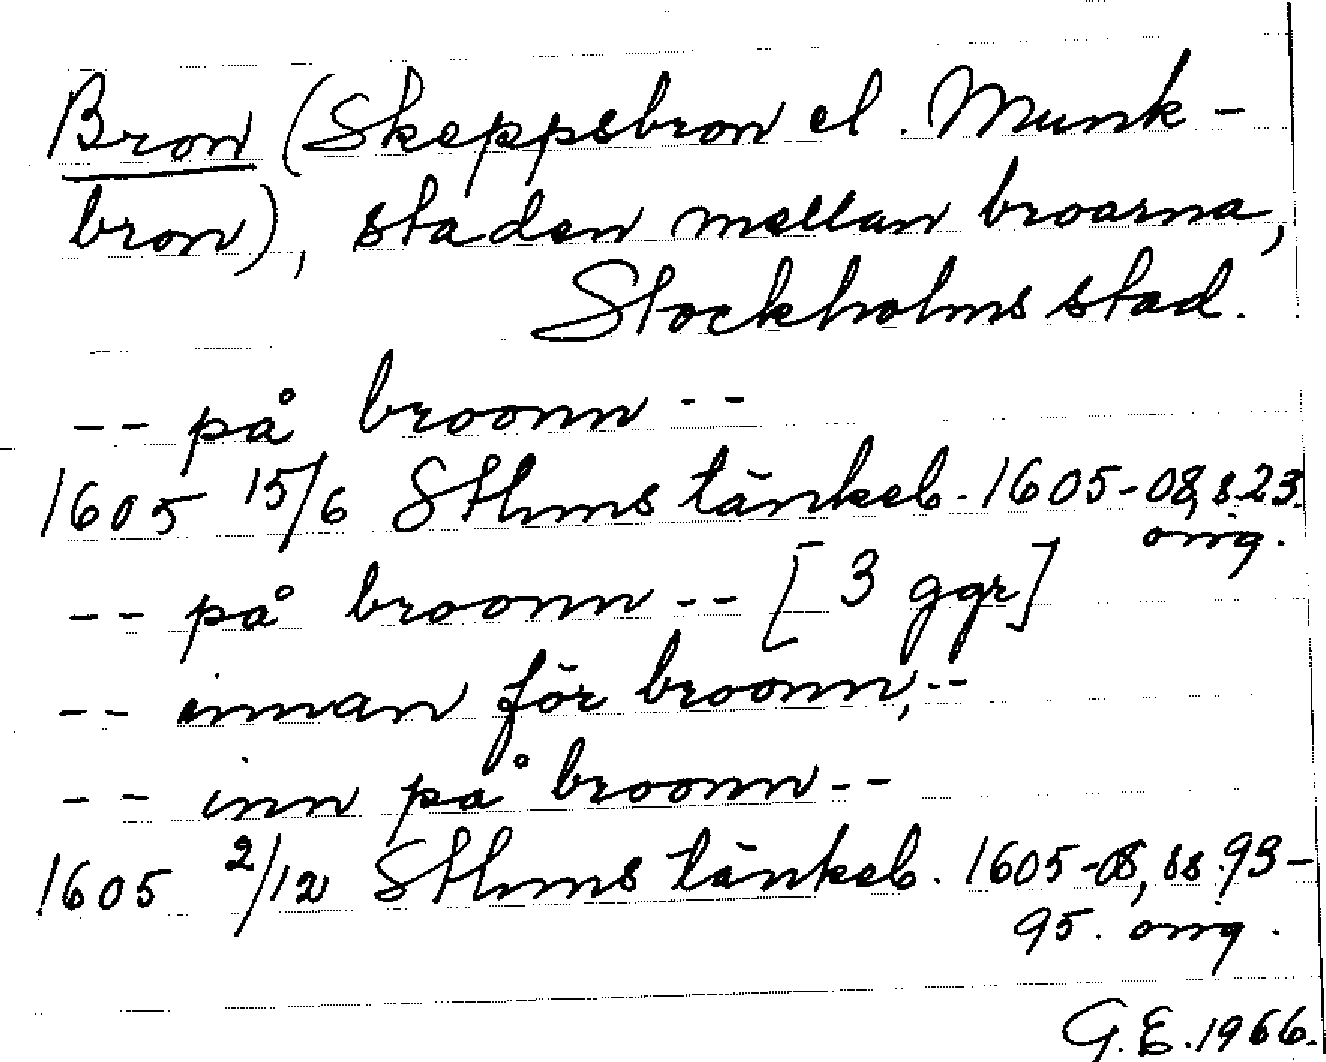 Bron (Skeppsbron el. Munk-
bron), staden mellan broarna,
Stockholms stad.
-- på broonn --
1605 15/6 Sthms tänkeb. 1605-08, s. 23.
orig.
-- på broonn -- [3 ggr]
-- innan för broonn, --
-- inn på broonn --
1605 2/12 Sthms tänkeb. 1605-08, ss. 93-
95. orig.
G.E. 1966.